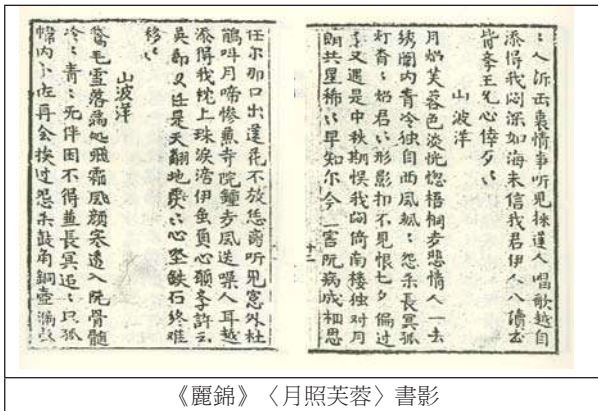 人訴出裏情事听見採蓮人唱歌越自
添得我悶深如海未信我君伊人八債去
皆辜王允心倖歹
山波洋
月炤芙蓉色淡恍惚梧桐步悲情人一去
綉闺内青冷独自西風孤怨杀長冥孤
灯育炤君形影扣不見恨七夕偏过
又遇是中秋期悮我闷倚南楼独对月
朗共星稀早知尔今害阮病成相思
十二
任尔那口出莲花不放恁听見窓外杜
鵑叫月啼惨寺院鐘步風送噪人耳越
添得我枕上珠淚滴伊負心願許
吳郎又任是天翻地心坚鉄石終难
移
山波洋
鵞毛雪落满处飛霜風寒透入阮骨髓
冷青无伴困不得長冥迢只孤
幃内再会挨过怨杀鼓角銅壺漏点
《麗錦》〈月照芙蓉〉書影